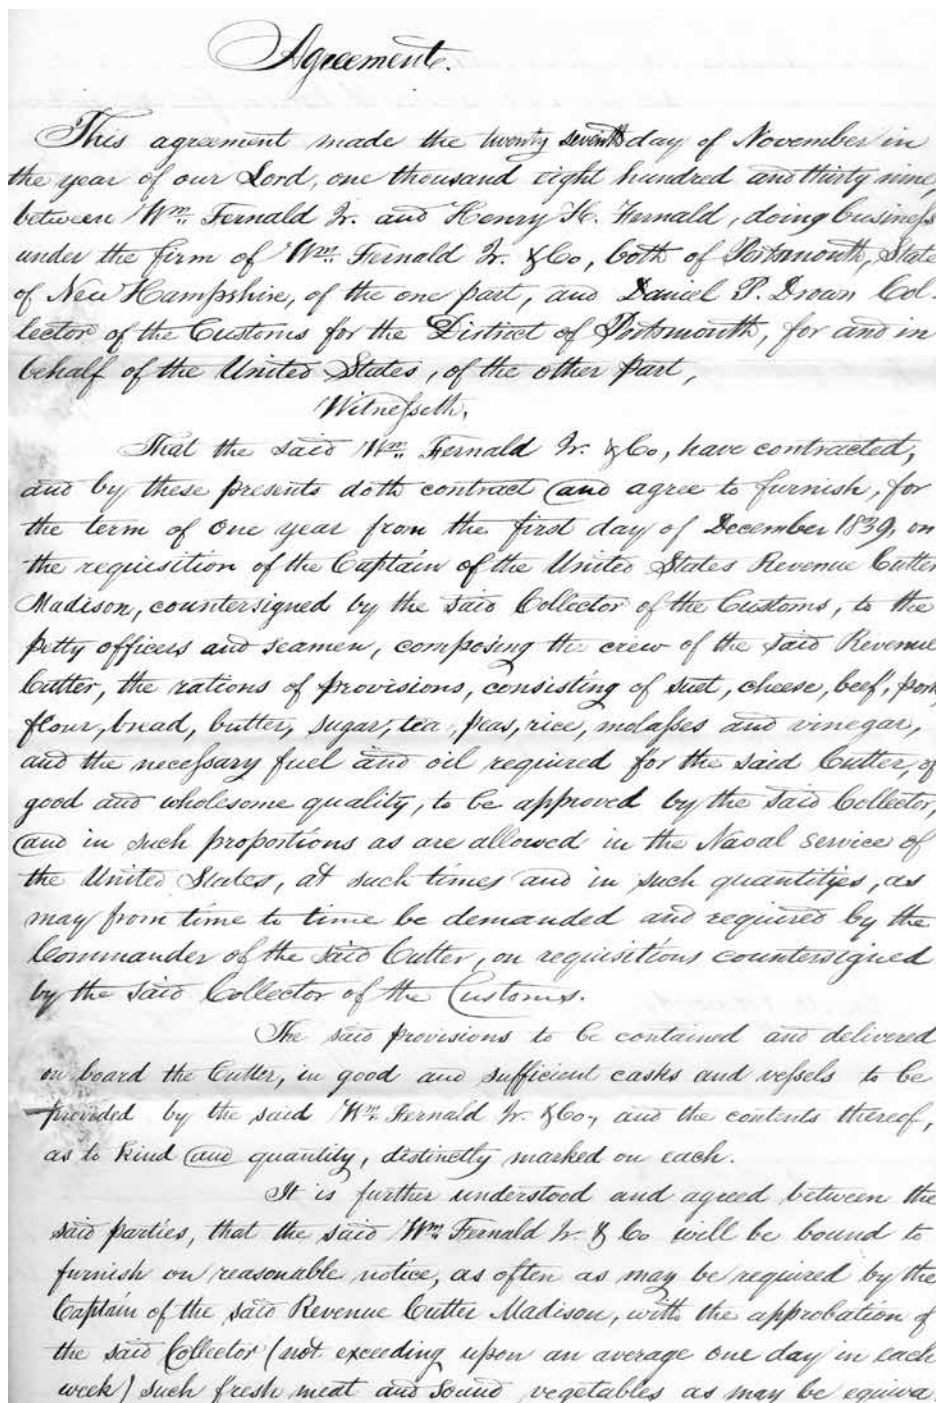 Agreement.
This agreement made the twenty seventh day of November in
the year of our Lord, one thousand eight hundred and thirty nine,
between Wm. Fernald Jr. and Henry H. Fernald, doing business
under the firm of Wm. Fernald Jr. & Co, both of Portsmouth, State
of New Hampshire, of the one part, and Daniel P. Drown Col-
lector of the Customs for the District of Portsmouth, for and in
behalf of the United States, of the other part,
Witnesseth,
That the said Wm. Fernald Jr. & Co, have contracted,
and by these presents doth contract and agree to furnish, for
the term of one year from the first day of December 1839, on
the requisition of the Captain of the United States Revenue Cutter
Madison, countersigned by the said Collector of the Customs, to the
petty officers and seamen, composing the crew of the said Revenue
Cutter, the rations of provisions, consisting of suet, cheese, beef, pork,
flour, bread, butter, sugar, tea, peas, rice, molasses and vinegar,
and the necessary fuel and oil required for the said Cutter, of
good and wholesome quality, to be approved by the said Collector,
and in such proportions as are allowed in the Naval service of
the United States, at such times and in such quantities, as
may from time to time be demanded and required by the
Commander of the said Cutter, on requisitions countersigned
by the said Collector of the Customs.
The said provisions to be contained and delivered
on board the Cutter, in good and sufficient casks and vessels to be
provided by the said Wm. Fernald Jr. & Co., and the contents thereof,
as to kind and quantity, distinctly marked on each.
It is further understood and agreed between the
said parties, that the said Wm. Fernald Jr. & Co will be bound to
furnish on reasonable notice, as often as may be required by the
Captain of the said Revenue Cutter Madison, with the approbation of
the said Collector (not exceeding upon an average one day in each
week) such fresh meat and sound vegetables as may be equiva-